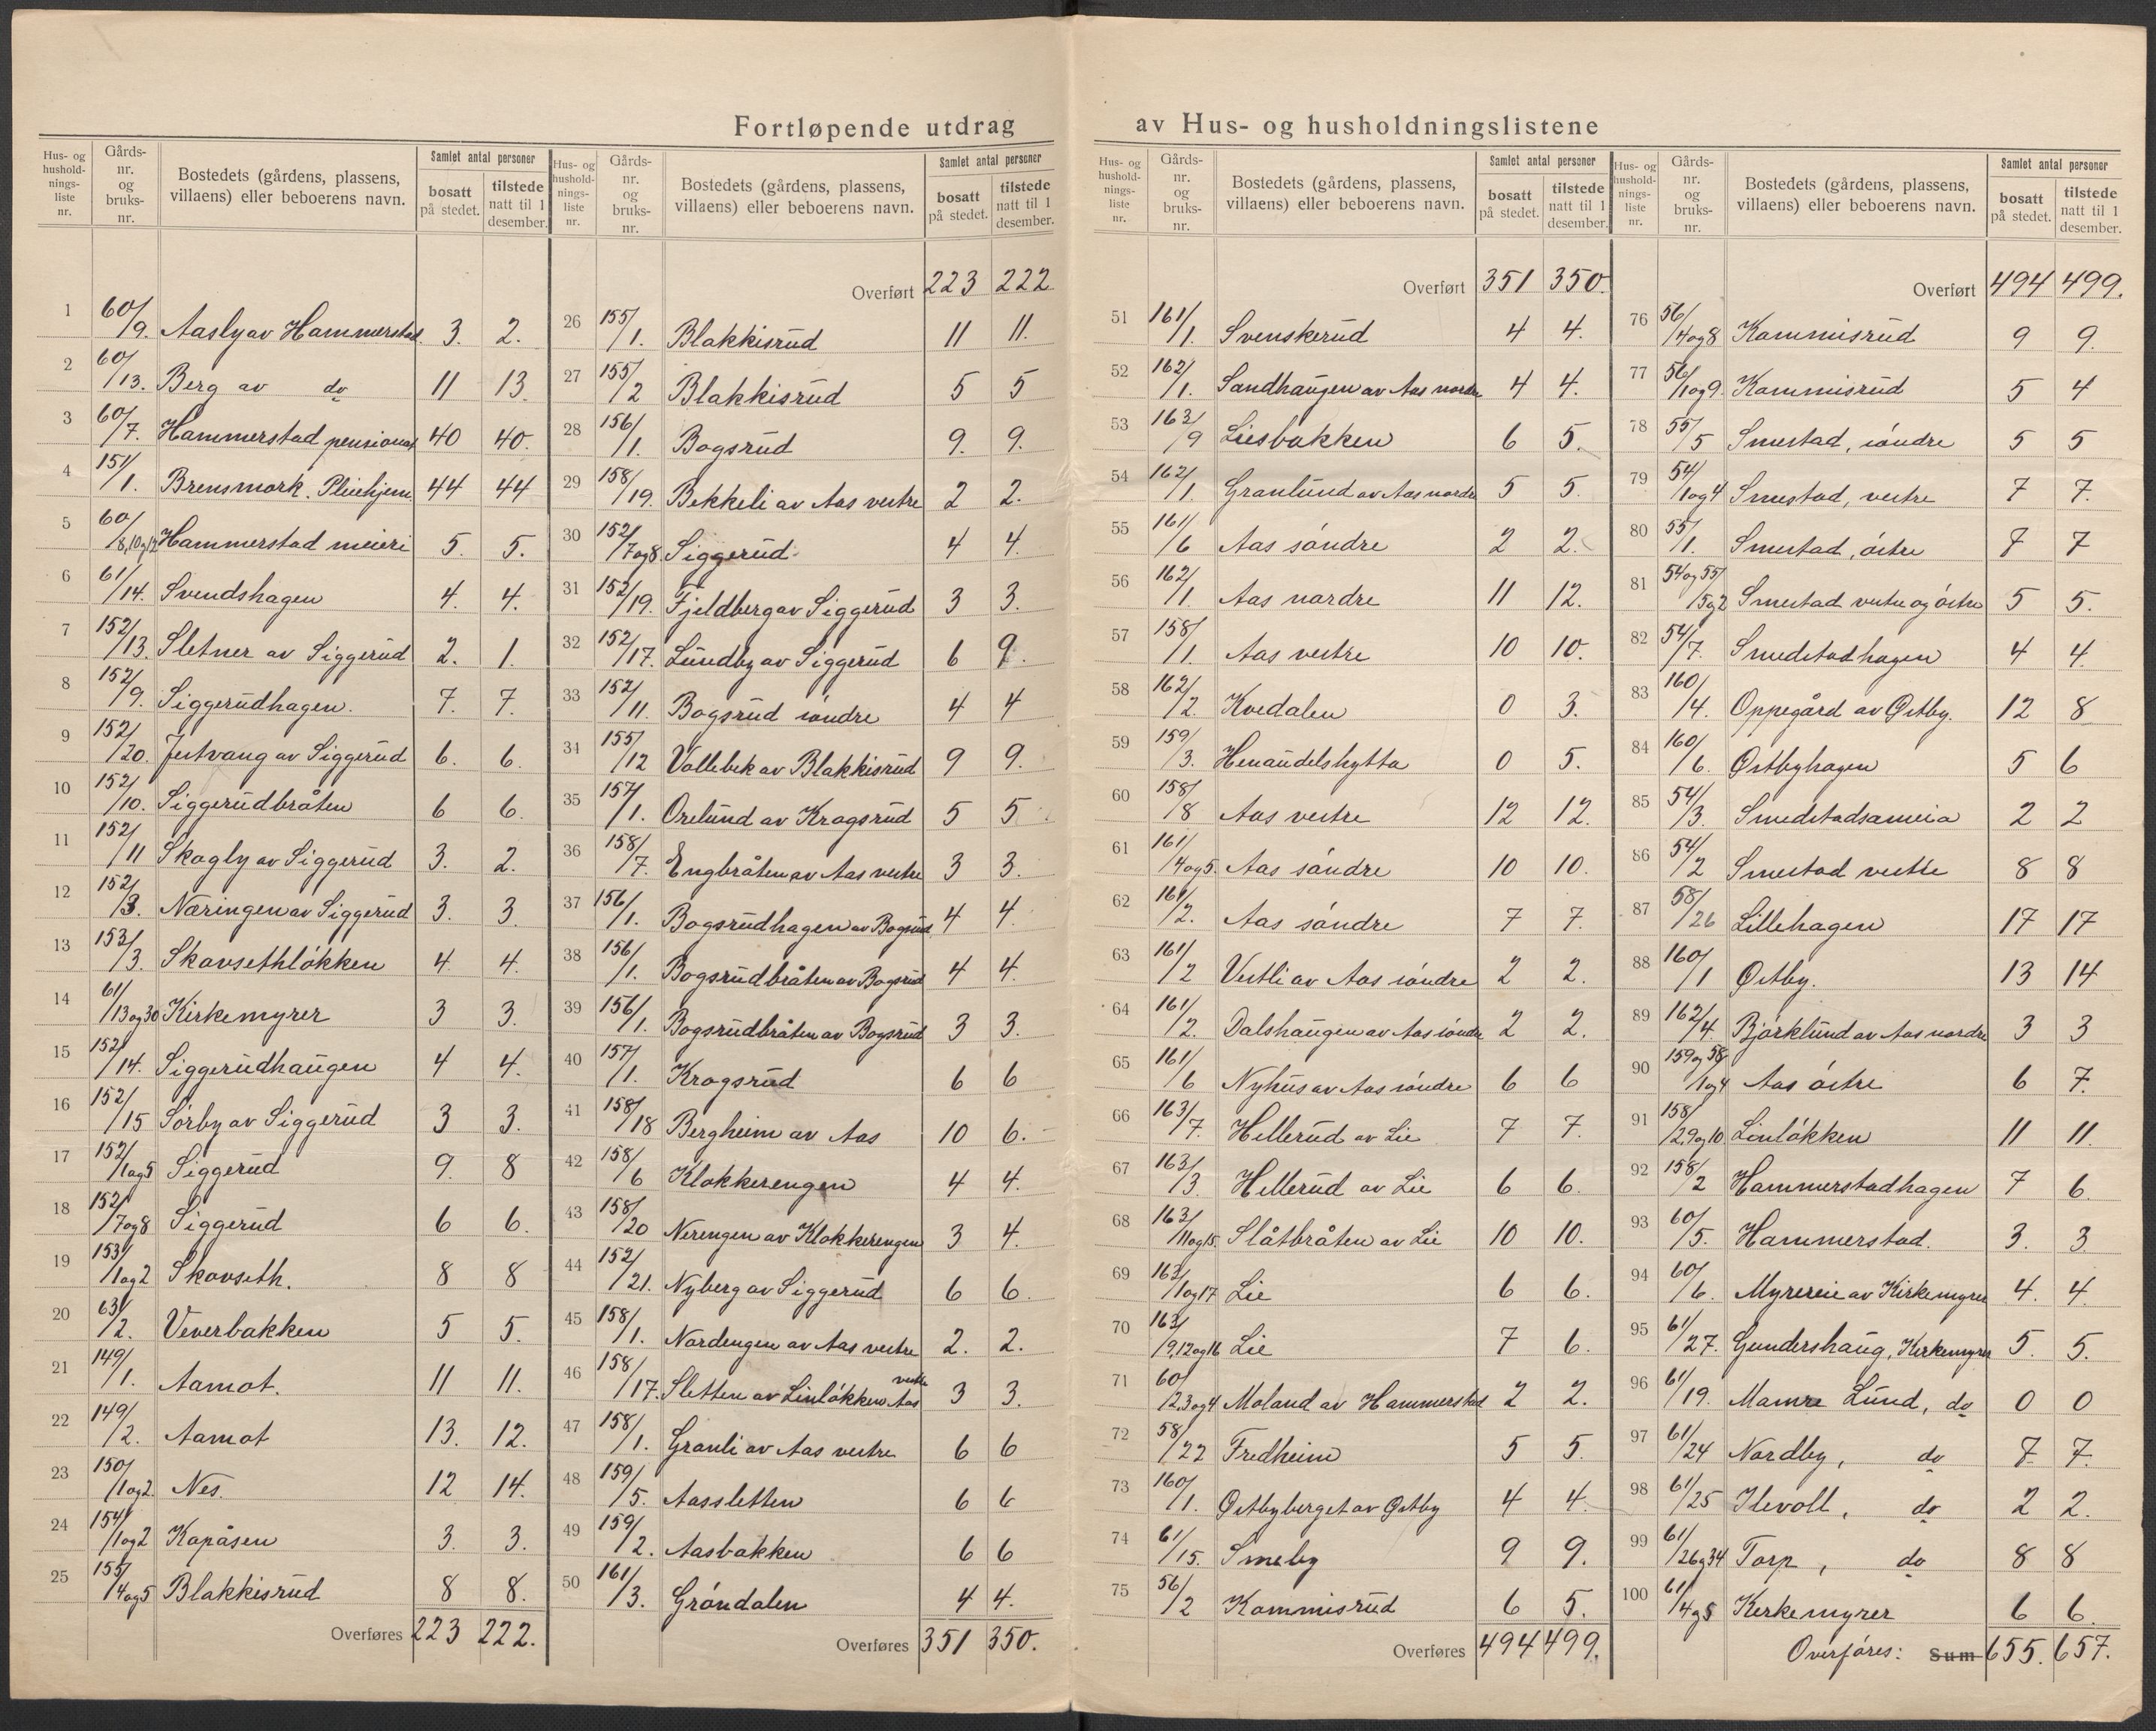 Fortløpende utdrag av Hus- og husholdningslistene
Hus- og hushold-nings-liste nr. | Gårds-nr. og bruks-nr. | Bostedets (gårdens, plassens, villaens) eller beboerens navn. | Samlet antal personer | bosatt på stedet. | tilstede natt til 1 desember.
1 60/9. Aasly av Hammerstad. 3. 2.
2 60/13. Berg av do 11 13.
3 60/7. Hammerstad pensionat 40 40.
4 151/1. Brensmork. Pleiehjem 44 44
5 60/8,10og12 Hammerstad meieri 5. 5.
6 61/14. Svendshagen 4. 4.
7 152/13. Sletner av Siggerud 2. 1.
8 152/9. Siggerudhagen. 7. 7.
9 152/20. Jestvang av Siggerud 6. 6.
10 152/10. Siggerudbråten 6 6.
11 152/11 Skogly av Siggerud 3. 2.
12 152/3. Næringen av Siggerud 3. 3.
13 153/3. Skovsethløkken 4. 4.
14 61/13og30 Kirkemyrer 3 3.
15 152/14. Siggerudhaugen 4 4.
16 152/15 Sørby av Siggerud 3 3.
17 152/1og5 Siggerud 9. 8
18 152/7og8 Siggerud 6 6.
19 153/1og2 Skovseth. 8 8
20 63/2. Veverbakken 5 5.
21 149/1. Aamot. 11 11.
22 149/2. Aamot 13. 12.
23 150/1og2. Nes. 12 14.
24 154/1og2 Kapåsen 3. 3.
25 155/4og5 Blakkisrud 8 8.
Overføres 223 222.
Hus- og hushold-nings-liste nr. | Gårds-nr. og bruks-nr. | Bostedets (gårdens, plassens, villaens) eller beboerens navn. | Samlet antal personer | bosatt på stedet. | tilstede natt til 1 desember.
Overført 223 222.
26 155/1. Blakkisrud 11 11.
27 155/2 Blakkisrud 5 5
28 156/1. Bogsrud 9. 9.
29 158/19. Bekkeli av Aas vestre 2 2.
30 152/7og8. Siggerud 4 4.
31 152/19. Fjeldberg av Siggerud 3 3.
32 152/17. Lundby av Siggerud 6 9.
33 152/11. Bogsrud søndre 4 4
34 155/12 Vollebek av Blakkisrud 9 9.
35 157/1. Orelund av Krogsrud 5 5
36 158/7. Engbråten av Aas vestre 3 3.
37 156/1. Bogsrudhagen av Bogsrud 4 4.
38 156/1. Bogsrudbråten av Bogsrud 4 4.
39 156/1. Bogsrudbråten av Bogsrud 3 3.
40 157/1. Krogsrud 6 6
41 158/18 Bergheim av Aas 10 6.
42 158/6 Klokkerengen 4 4.
43 158/20 Nerengen av Klokkerengen 3 4.
44 152/21. Nyberg av Siggerud 6 6.
45 158/1. Nordengen av Aas vestre 2. 2.
46 158/17. Sletten av Linløkken Aas vestre 3 3.
47 158/1. Granli av Aas vestre 6 6
48 159/5. Aassletten 6 6
49 159/2. Aasbakken 6 6
50 161/3. Grøndalen 4 4.
Overføres 351 350.
Hus- og hushold-nings-liste nr. | Gårds-nr. og bruks-nr. | Bostedets (gårdens, plassens, villaens) eller beboerens navn. | Samlet antal personer | bosatt på stedet. | tilstede natt til 1 desember.
Overført 351 350.
51 161/1. Svenskerud 4 4.
52 162/1. Sandhaugen av Aas nordre 4 4.
53 163/9 Liesbakken 6 5.
54 162/1. Granlund av Aas nordre 5 5.
55 161/6 Aas søndre 2 2.
56 162/1. Aas nordre 11 12.
57 158/1. Aas vestre 10 10.
58 162/2. Kvedalen 0 3.
59 159/3. Henaudelshytta 0 5.
60 158/8 Aas vestre 12 12.
61 161/4og5. Aas søndre 10 10.
62 161/2. Aas søndre 7 7.
63 161/2 Vestli av Aas søndre 2 2.
64 161/2. Dalshaugen av Aas søndre 2 2.
65 161/6 Nyhus av Aas søndre 6 6
66 163/7. Hellerud av Lie 7 7.
67 163/3. Hellerud av Lie 6 6.
68 163/11og15. Slåtbråten av Lie 10 10.
69 163/1og17 Lie 6 6.
70 163/9,12og16 Lie 7 6.
71 60/2,3og4 Moland av Hammerstad 2 2.
72 58/22 Fredheim 5 5.
73 160/1. Østbyberget av Østby 4 4.
74 61/15. Smeby 9 9.
75 56/2 Kommisrud 6 5.
Overføres 494 499.
Hus- og hushold-nings-liste nr. | Gårds-nr. og bruks-nr. | Bostedets (gårdens, plassens, villaens) eller beboerens navn. | Samlet antal personer | bosatt på stedet. | tilstede natt til 1 desember.
Overført 494 499.
76 56/4og8 Kommisrud 9 9.
77 56/1og9. Kommisrud 5 4
78 55/5 Smestad, søndre 5 5
79 54/1og4 Smestad, vestre 7 7.
80 55/1. Smestad, østre 7 7
81 54og55/5og2 Smestad vestre og østre 5 5.
82 54/7. Smedstadhagen 4 4.
83 160/4. Oppegård av Østby. 12 8
84 160/6. Østbyhagen 5 6
85 54/3. Smedstadsameia 2 2
86 54/2 Smestad vestre 8 8
87 58/26 Lillehagen 17 17
88 160/1 Østby. 13 14
89 162/4 Bjørklund av Aas nordre 3 3
90 159og58/1og4 Aas østre 6 7.
91 158/2,9og10 Linløkken 11 11.
92 158/2 Hammerstadhagen 7 6.
93 60/5. Hammerstad. 3. 3
94 60/6. Myrereie av Kirkemyrer 4. 4.
95 61/27. Gundershaug, Kirkemyrer 5. 5.
96 61/19. Mamre Lund, do 0 0
97 61/24 Nordby, do 7 7.
98 61/25 Ilevoll, do 2 2.
99 61/26og34 Torp, do 8 8
100 61/4og5 Kirkemyrer 6 6.
Overføres: Sum 655. 657.